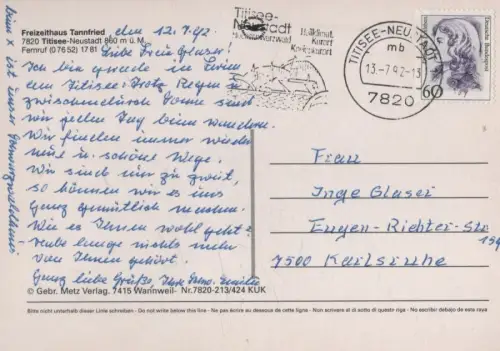 Freizeithaus Tannfried
7820 Titisee-Neustadt 860 m ü. M.
Fernruf (0 76 52) 17 81
den 12.7.92
Liebe Frau Glaser!
Ich bin gerade in
dem Titisee. Trotz Regen u.
zwischendurch Sonne sind
wir jeden Tag beim Wandern.
Wir finden immer wieder
neue u. schöne Wege.
Wir sind nur zu zweit,
so können wir es uns
ganz gemütlich machen.
Wie es Ihnen wohl geht?
Habe lange nichts mehr
von Ihnen gehört.
Ganz liebe Grüße, Ihre
Beim X ist unser
© Gebr. Metz Verlag. 7415 Wannweil- Nr.7820-213/424 KUK
Titisee-
Neustadt
Hochschwarzwald
Heilklimat.
Kurort
Kneippkurort
TITISEE-NEUSTADT
mb
13.-7.92-13
7820
Deutsche Bundespost
60
Frau
Inge Glaser
Eugen-Richter-Str
159
7500 Karlsruhe
Bitte nicht unterhalb dieser Linie schreiben - Do not write below this line - Ne pas écrire au dessous de cette ligne - Non scrivere al di sotto di questr riga - No escribir debajo de esta raya